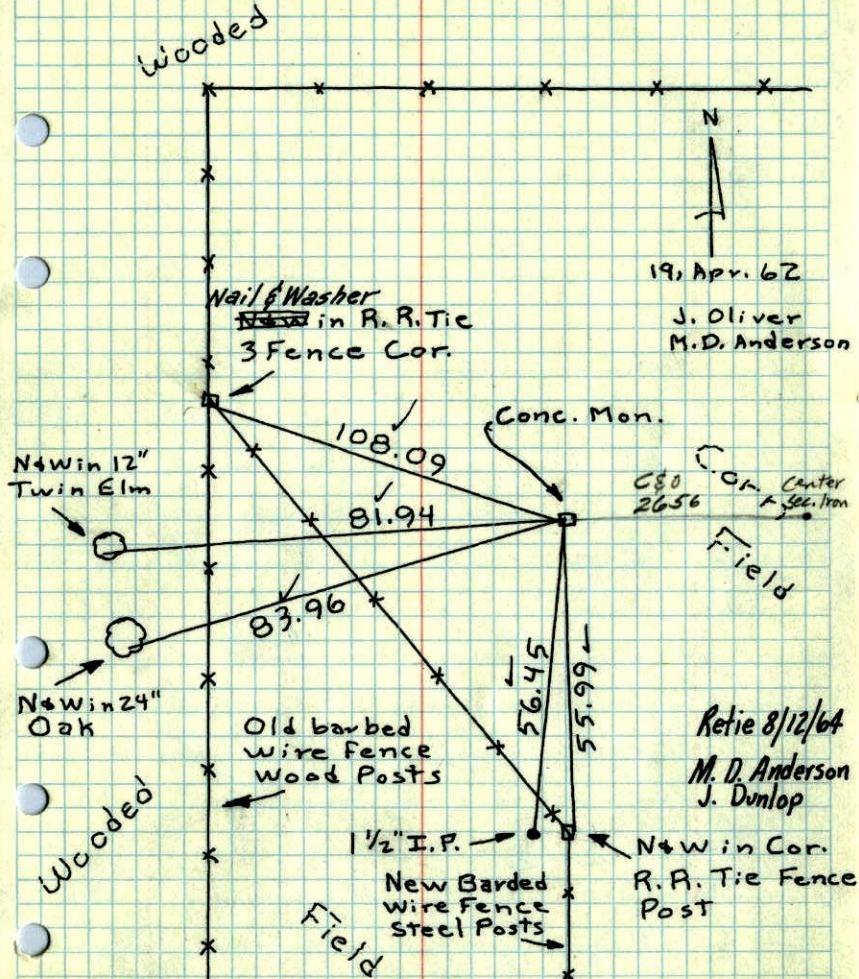 Wooded
N
19, Apr. 62
J. Oliver
M.D. Anderson
Nail & Washer
in R. R. Tie
3 Fence Cor.
Conc. Mon.
108.09
N&W in 12"
Twin Elm
81.94
C&O
2656
Center
Sec. Iron
Corn
Field
83.96
N&W in 24"
Oak
56.45
55.99
Old barbed
wire Fence
Wood Posts
Retie 8/12/64
M. D. Anderson
J. Dunlop
Wooded
1 1/2" I.P.
N&W in Cor.
R. R. Tie Fence
Post
New Barded
wire Fence
Steel Posts
Field